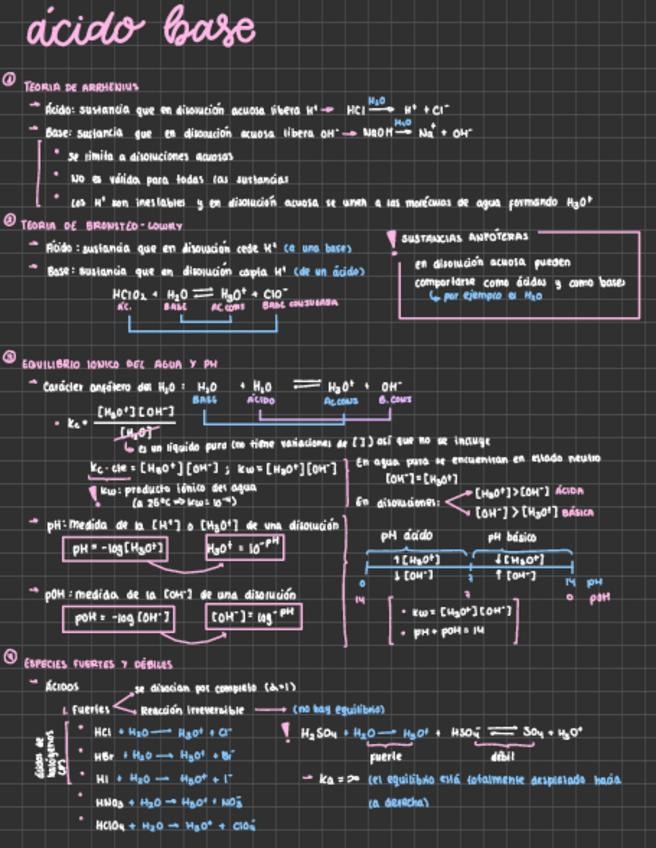 ácido base
① TEORIA DE ARRHENIUS
→ Ácido: sustancia que en disolución acuosa libera H⁺ → HCl —H₂O→ H⁺ + Cl⁻
→ Base: sustancia que en disolución acuosa libera OH⁻ → NaOH —H₂O→ Na⁺ + OH⁻
• se limita a disoluciones acuosas
• No es válida para todas las sustancias
• Los H⁺ son inestables y en disolución acuosa se unen a las moléculas de agua formando H₃O⁺
② TEORIA DE BRONSTED-LOWRY
→ Ácido: sustancia que en disolución cede H⁺ (a una base)
→ Base: sustancia que en disolución capta H⁺ (de un ácido)
HClO₂ + H₂O ⇌ H₃O⁺ + ClO⁻
ÁC. BASE AC.CONJ BASE CONJUGADA
! SUSTANCIAS ANFÓTERAS
en disolución acuosa pueden
comportarse como ácidos y como bases
↳ por ejemplo el H₂O
③ EQUILIBRIO IONICO DEL AGUA Y PH
→ Carácter anfótero del H₂O: H₂O + H₂O ⇌ H₃O⁺ + OH⁻
BASE ÁCIDO Ac.cons B.cons
• Kc = [H₃O⁺][OH⁻]
[H₂O]
↳ es un líquido puro (no tiene variaciones de [ ]) así que no se incluye
Kc · cte = [H₃O⁺][OH⁻] ; Kw = [H₃O⁺][OH⁻]
! Kw: producto iónico del agua
(a 25ºC ⇒ Kw = 10⁻¹⁴)
En agua pura se encuentran en estado neutro
[OH⁻] = [H₃O⁺]
En disoluciones: [H₃O⁺] > [OH⁻] ÁCIDA
[OH⁻] > [H₃O⁺] BÁSICA
→ pH: medida de la [H⁺] o [H₃O⁺] de una disolución
pH = -log[H₃O⁺] H₃O⁺ = 10⁻ᵖᴴ
→ pOH: medida de la [OH⁻] de una disolución
pOH = -log [OH⁻] [OH⁻] = log⁻ᵖᴴ
pH ácido pH básico
↑[H₃O⁺] ↓[H₃O⁺]
↓[OH⁻] ↑[OH⁻]
0 7 14 pH
14 7 0 pOH
• Kw = [H₃O⁺][OH⁻]
• pH + pOH = 14
④ ESPECIES FUERTES Y DÉBILES
→ ÁCIDOS
1. Fuertes
se disocian por completo (α=1)
Reacción irreversible → (no hay equilibrio)
ácidos de halógenos
• HCl + H₂O → H₃O⁺ + Cl⁻
• HBr + H₂O → H₃O⁺ + Br⁻
• HI + H₂O → H₃O⁺ + I⁻
• HNO₃ + H₂O → H₃O⁺ + NO₃⁻
• HClO₄ + H₂O → H₃O⁺ + ClO₄⁻
! H₂SO₄ + H₂O → H₃O⁺ + HSO₄⁻ ⇌ SO₄ + H₃O⁺
fuerte débil
→ Ka = ∞ (el equilibrio está totalmente desplazado hacia
la derecha)